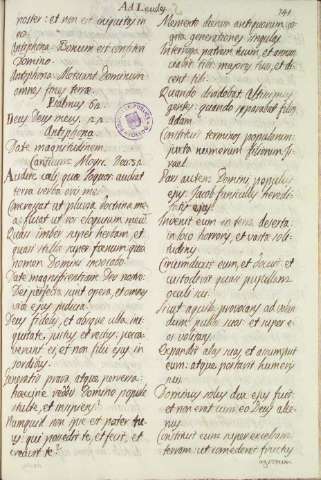 Ad Laudes
241
noster: et non est iniquitas in
eo.
Antiphona. Bonum est confiteri
Domino.
Antiphona. Metuant Dominum
omnes fines terræ.
Psalmus 62.
Deus Deus meus. 22
Antiphona
Date magnitudinem.
Canticum Moysi. Deu. 32.
Audite cæli quæ loquor audiat
terra verba oris mei.
Concrescat ut pluvia doctrina me
a, fluat ut ros eloquium meum.
Quasi imber super herbam, et
quasi stillæ super gramina, quia
nomen Domini invocabo.
Date magnificentiam Deo nostro:
Dei perfecta sunt opera, et omnes
viæ ejus judicia.
Deus fidelis, et absque ulla ini
quitate, justus et rectus, pecca
verunt ei, et non filii ejus in
sordibus.
Generatio prava atque perversa:
hæccine reddis Domino popule
stulte, et insipiens?
Numquid non ipse est pater tuus,
qui possedit te, et fecit, et
creavit te?
Memento dierum antiquorum: co
gita generationes singulas.
Interroga patrem tuum, et annun
ciabit tibi, majores tuos, et di
cent tibi.
Quando dividebat Altissimus
gentes: quando separabat filios
Adam.
Constituit terminos populorum:
juxta numerum filiorum Is
rael.
Pars autem Domini populus
ejus, Jacob funiculus heredi
tatis ejus.
Invenit eum in terra deserta
in loco horroris, et vastæ soli
tudinis.
Circumduxit eum, et docuit et
custodivit quasi pupillam
oculi sui.
Sicut aquila provocans ad volan
dum pullos suos et super e
os volitans.
Expandit alas suas et assumpsit
eum, atque portavit humeris
suis.
Dominus solus dux ejus fuit
et non erat cum eo Deus alie
nus.
Constituit eum super excelsam
terram, ut comederet fructus
agrorum